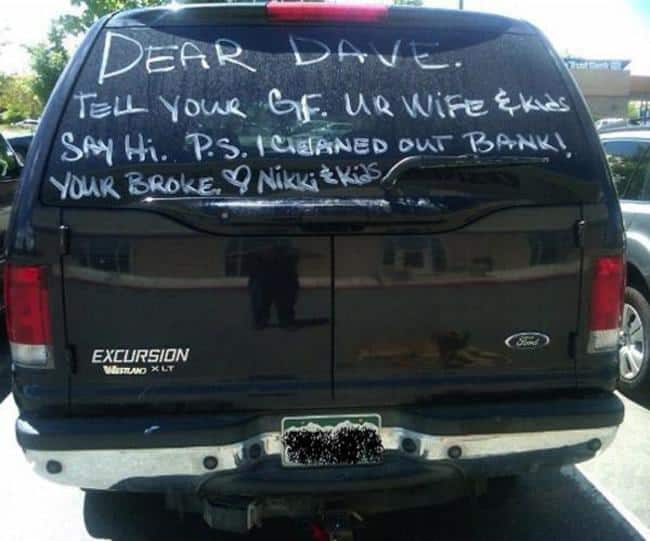 DEAR DAVE.
TELL YOUR GF. UR WIFE & KIDS
SAY Hi. P.S. I CLEANED OUT BANK!
YOUR BROKE. ♡ NIKKI & KIDS
EXCURSION
XLT
Ford